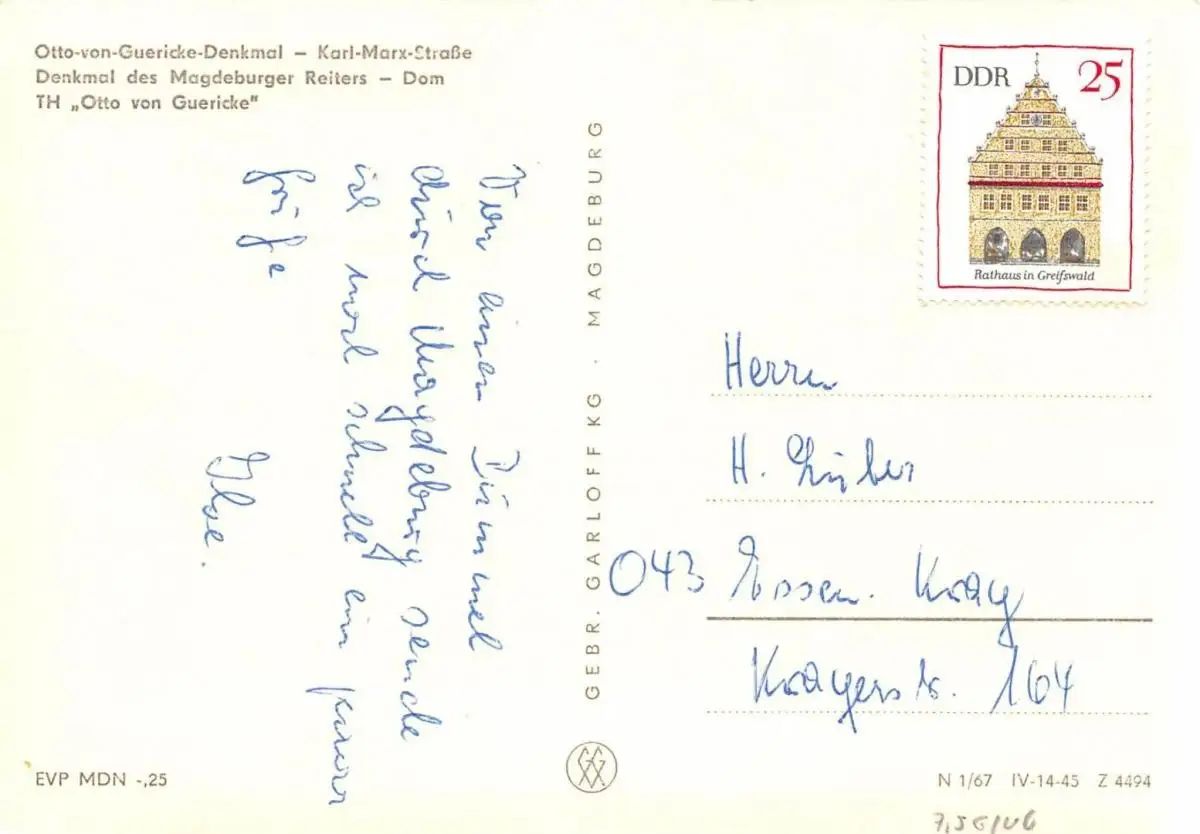 Otto-von-Guericke-Denkmal – Karl-Marx-Straße
Denkmal des Magdeburger Reiters – Dom
TH „Otto von Guericke"
DDR 25
Rathaus in Greifswald
Von einem Bummel
durch Magdeburg sende
ich noch schnell ein paar
Grüße
Ilse.
GEBR. GARLOFF KG · MAGDEBURG
Herrn
H.
043 Essen. Kray
Krayerstr. 164
EVP MDN -,25
N 1/67 IV-14-45 Z 4494